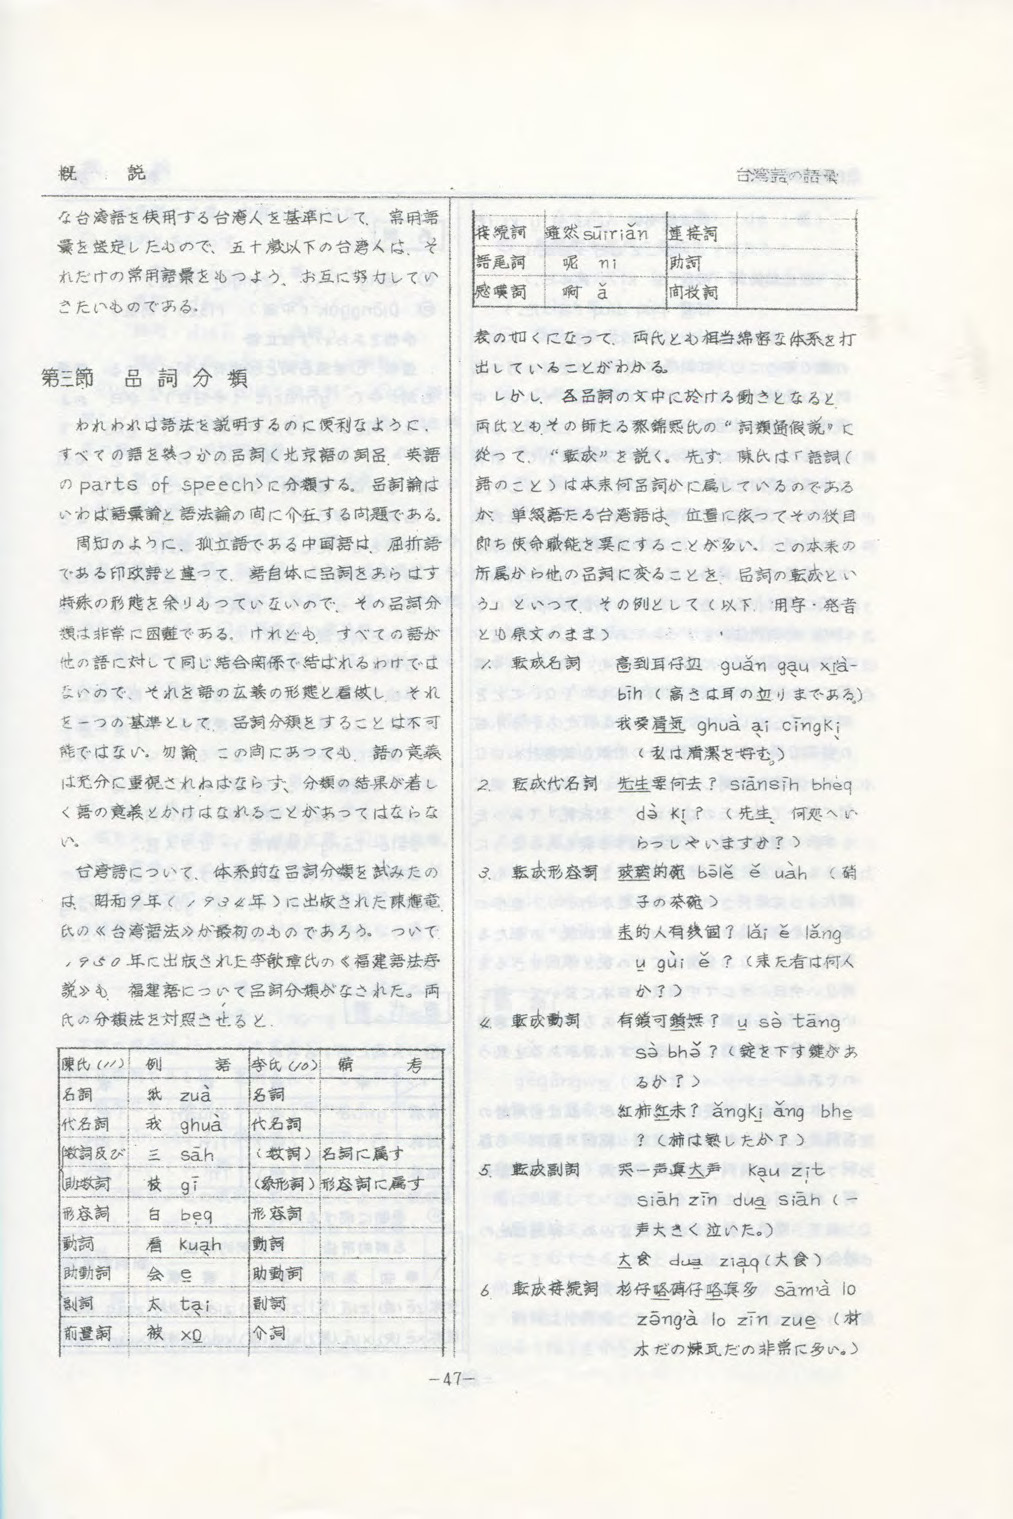 概　説
台湾語の語彙
な台湾語を使用する台湾人を基準にして、常用語
彙を選定したもので、五十歳以下の台湾人は、そ
れだけの常用語彙をもつよう、お互に努力してい
きたいものである。
第三節　品詞分類
われわれは語法を説明するのに便利なように、
すべての語を幾つかの品詞〈北京語の詞品、英語
の parts of speech〉に分類する。品詞論は
いわば語彙論と語法論の間に介在する問題である。
周知のように、孤立語である中国語は、屈折語
である印欧語と違って、語自体に品詞をあらはす
特殊の形態を余りもっていないので、その品詞分
類は非常に困難である。けれども、すべての語が
他の語に対して同じ結合関係で結ばれるわけでは
ないので、それを語の広義の形態と看做し、それ
を一つの基準として、品詞分類をすることは不可
能ではない。勿論、この間にあっても、語の意義
は充分に重視されねばならず、分類の結果が著し
く語の意義とかけはなれることがあってはならな
い。
台湾語について、体系的な品詞分類を試みたの
は、昭和9年(1934年)に出版された陳輝竜
氏の《台湾語法》が最初のものであろう。ついで
1950年に出版された李献璋氏の《福建語法序
説》も、福建語について品詞分類がなされた。両
氏の分類法を対照させると、
陳氏(11)　例　語　李氏(10)　備　考
名詞　紙 zuà　名詞
代名詞　我 ghuà　代名詞
数詞及び　三 sāh　(数詞)　名詞に属す
助数詞　枝 gī　(象形詞)　形容詞に属す
形容詞　白 beq　形容詞
動詞　看 kuah　動詞
助動詞　会 e　助動詞
副詞　太 tai　副詞
前置詞　被 xo　介詞
接続詞　雖然 suīriǎn　連接詞
語尾詞　呢 ni　助詞
感嘆詞　啊 ǎ　間投詞
表の如くになって、両氏とも相当綿密な体系を打
出していることがわかる。
しかし、各品詞の文中に於ける働きとなると、
両氏ともその師たる黎錦熙氏の“詞類通假説”に
従って、“転成”を説く。先ず、陳氏は「語詞(
語のこと)は本来何品詞かに属しているのである
が、単綴語たる台湾語は、位置に依ってその役目
即ち使命職能を異にすることが多い。この本来の
所属から他の品詞に変ることを、品詞の転成とい
う」といって、その例として(以下、用字・発音
とも原文のまま)
1. 転成名詞　高到耳仔辺 guǎn gau xia-
bīh (高さは耳の辺りまである。)
我愛清気 ghuà ai cīngki
(私は清潔を好む。)
2. 転成代名詞　先生要何去? siānsīh bhèq
dà ki? (先生、何処へい
らっしゃいますか?)
3. 転成形容詞　玻璃的碗 bōlě ě uàh (硝
子の茶碗)
来的人有幾個? lǎi ě lǎng
u gùi ě? (来た者は何人
か?)
4. 転成動詞　有鎖可鎖無? u sò tāng
sò bhǒ? (錠を下す鍵があ
るか?)
紅柿紅未? ǎngki ǎng bhe
? (柿は熟したか?)
5. 転成副詞　哭一声真大声 kau zit
siāh zīn dua siāh (一
声大きく泣いた。)
大食 dua ziaq(大食)
6. 転成接続詞　杉仔咯磚仔咯真多 sāmà lo
zōngà lo zīn zue (材
木だの煉瓦だの非常に多い。)
-47-